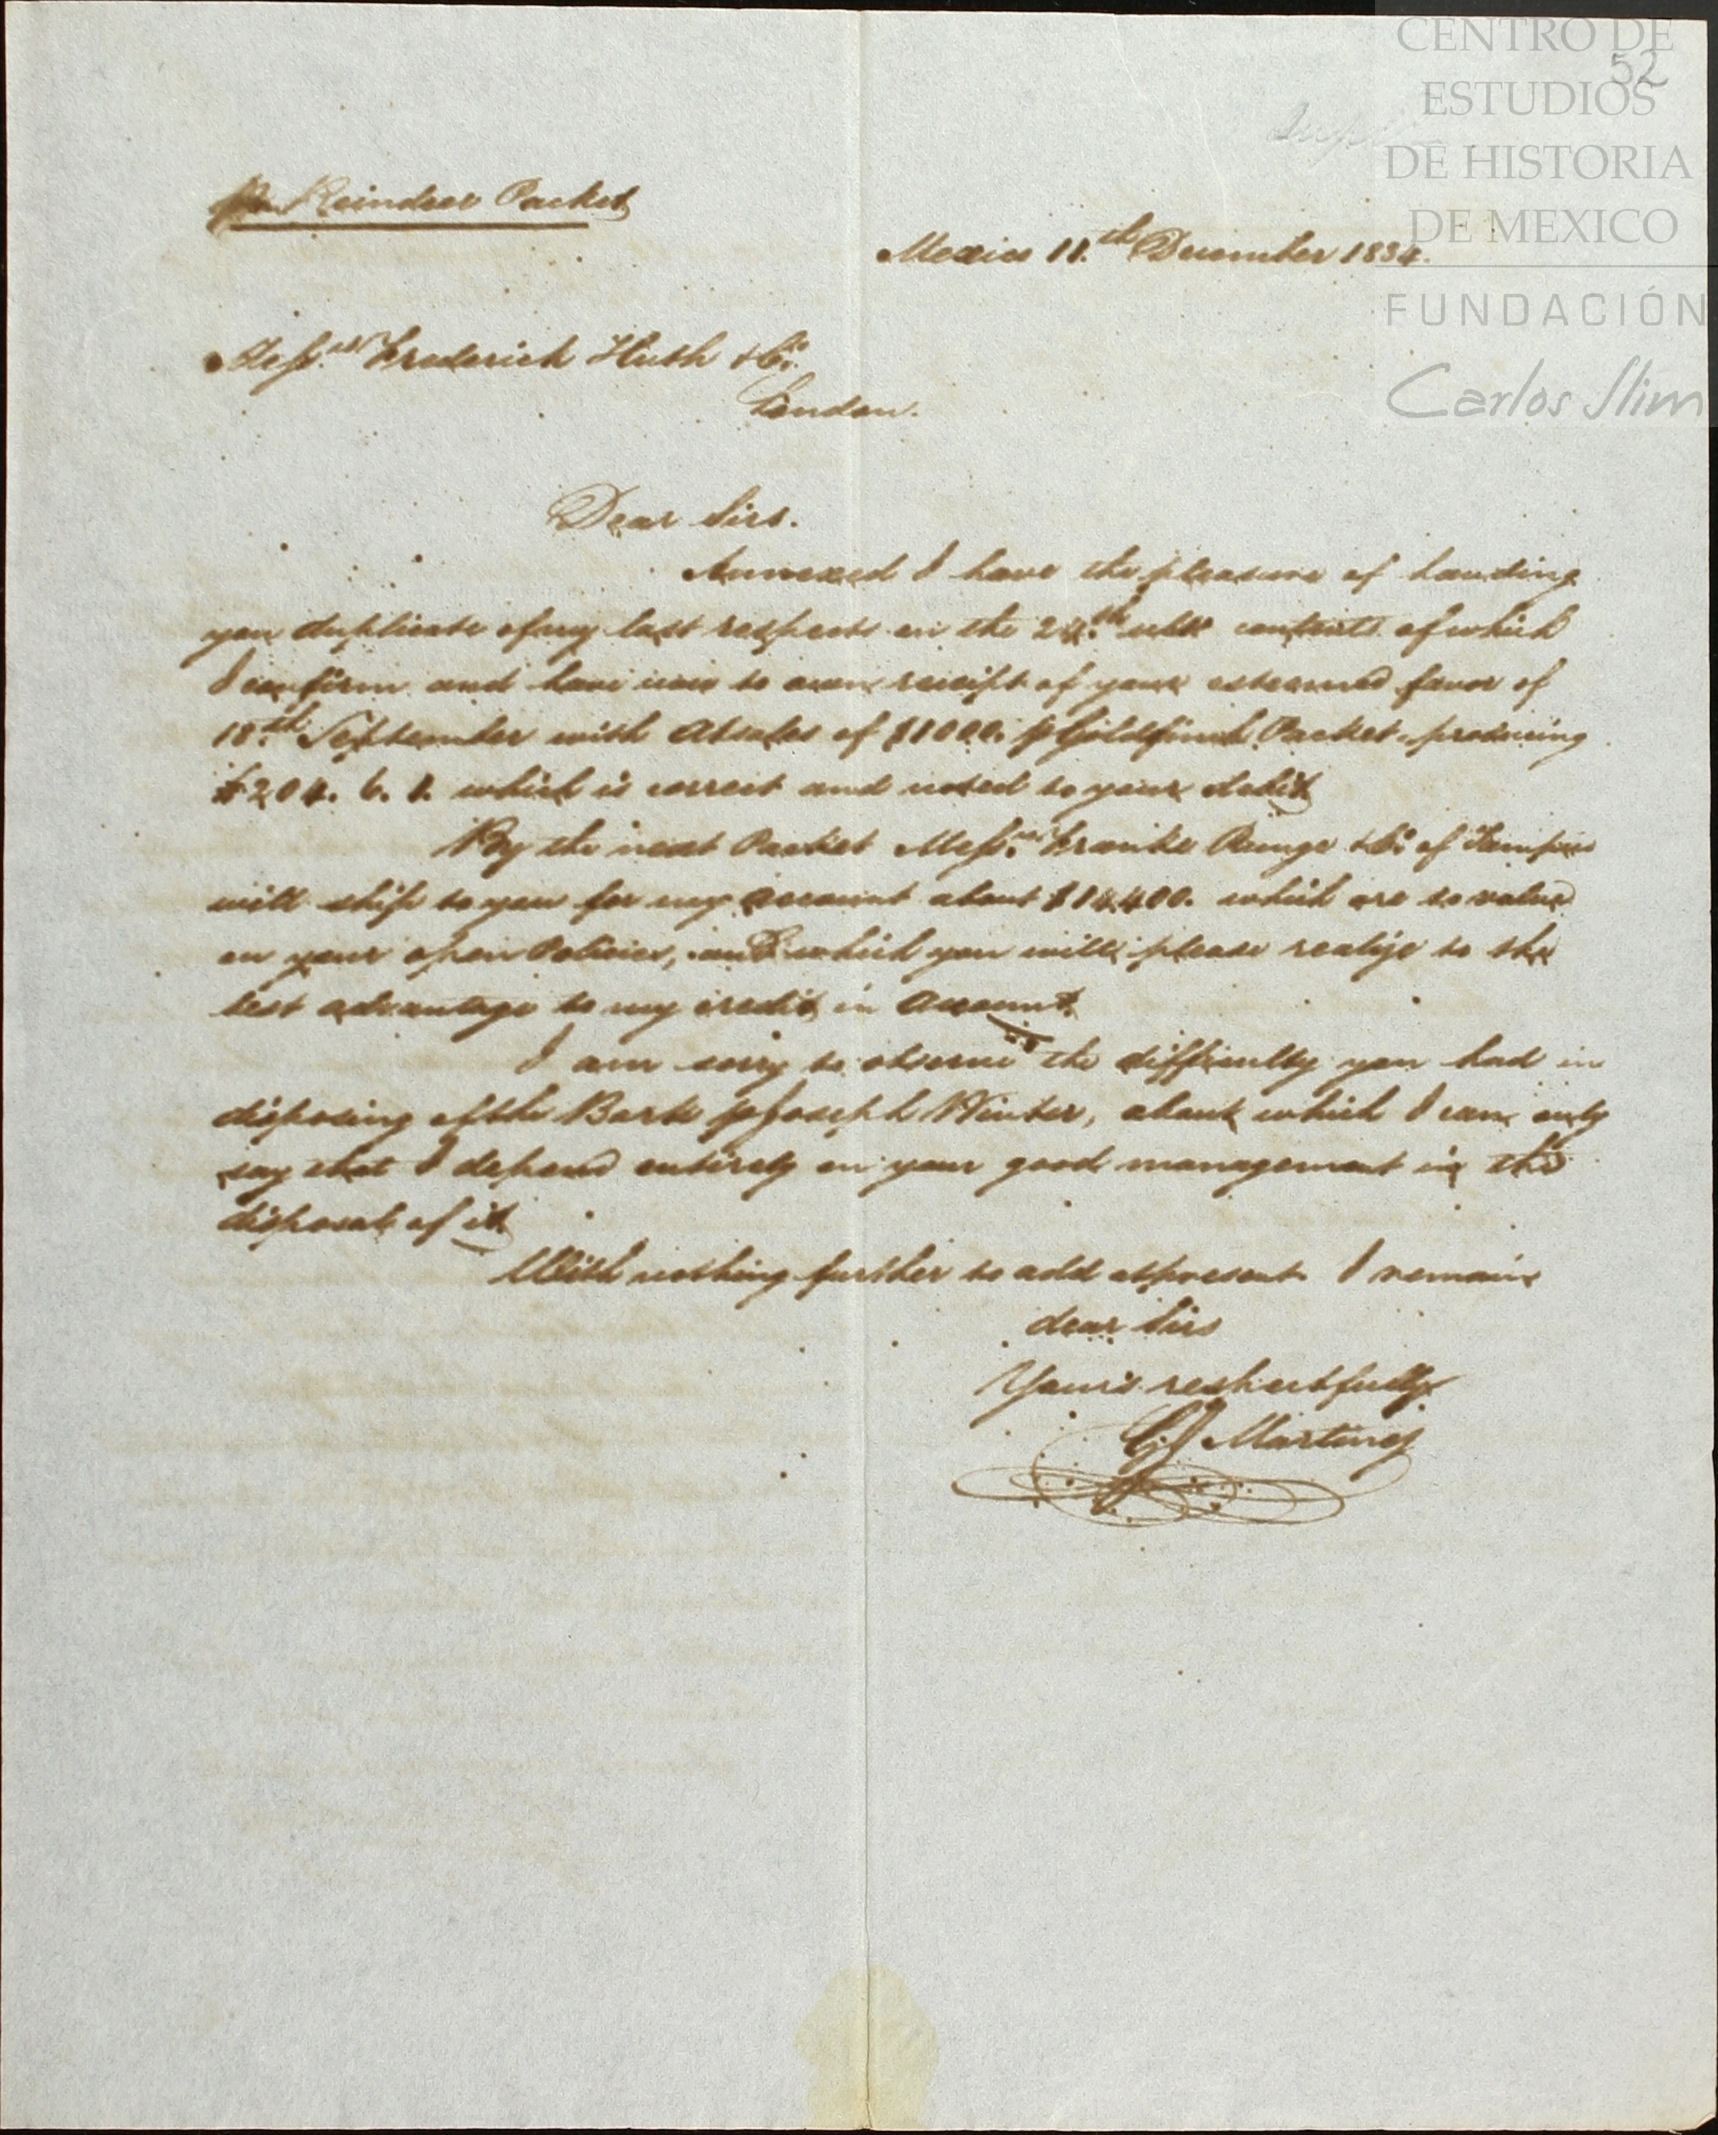 CENTRO DE
52
ESTUDIOS
DE HISTORIA
DE MEXICO
FUNDACIÓN
Carlos Slim
Pr Reindeer Packet
Mexico 11.th December 1834.
Messrs Frederick Huth & Co.
London.
Dear Sirs.
Annexed I have the pleasure of handing
you duplicate of my last respects on the 24.th ulto contents of which
I confirm and have now to own receipt of your esteemed favor of
18.th September with A/sales of $1000. p Goldfinch Packet producing
£204. 6. 1. which is correct and noted to your debit
By the next Packet Messrs Franke Runge & Co. of
will ship to you for my account about $14,400. which are to value
on your open Policies, and which you will please realize to the
best advantage to my credit in account.
I am sorry to observe the difficulty you had in
disposing of the Bark p Joseph Winter, about which I can only
say that I depend entirely on your good management in the
disposal of it.
With nothing further to add at present I remain
dear Sirs
Yours respectfully
Martinez